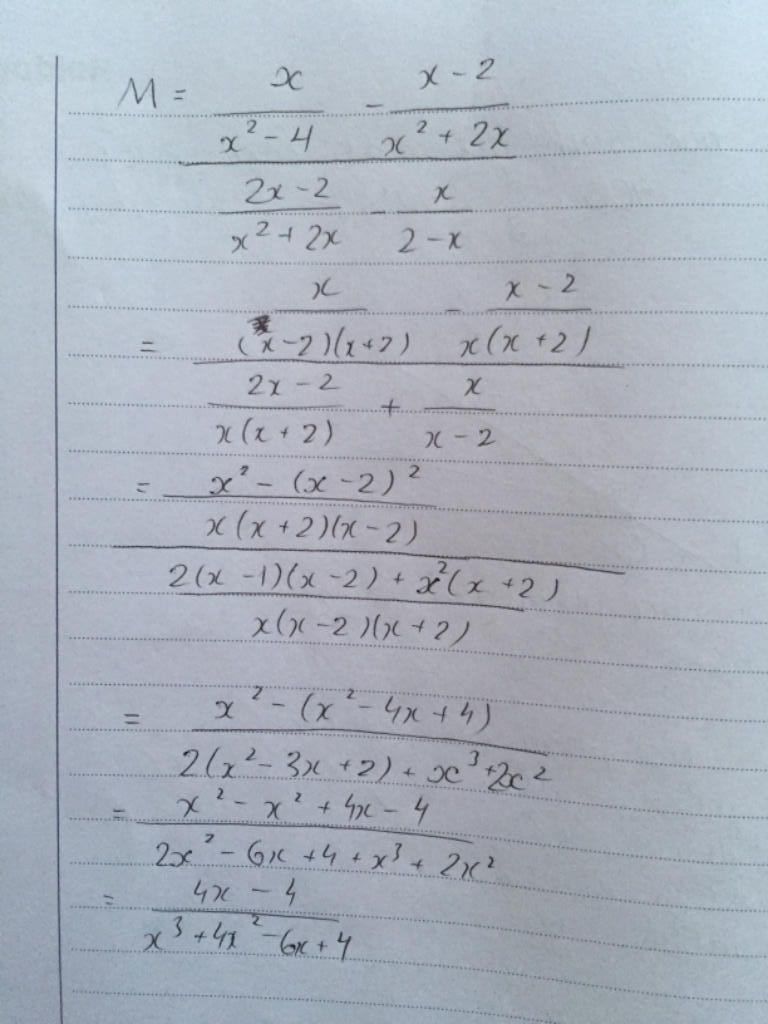 M = x/(x² - 4) - (x - 2)/(x² + 2x)
(2x - 2)/(x² + 2x) - x/(2 - x)
= x/((x - 2)(x + 2)) - (x - 2)/(x(x + 2))
(2x - 2)/(x(x + 2)) + x/(x - 2)
= x² - (x - 2)²
x(x + 2)(x - 2)
2(x - 1)(x - 2) + x²(x + 2)
x(x - 2)(x + 2)
= x² - (x² - 4x + 4)
2(x² - 3x + 2) + x³ + 2x²
= x² - x² + 4x - 4
2x² - 6x + 4 + x³ + 2x²
= 4x - 4
x³ + 4x² - 6x + 4